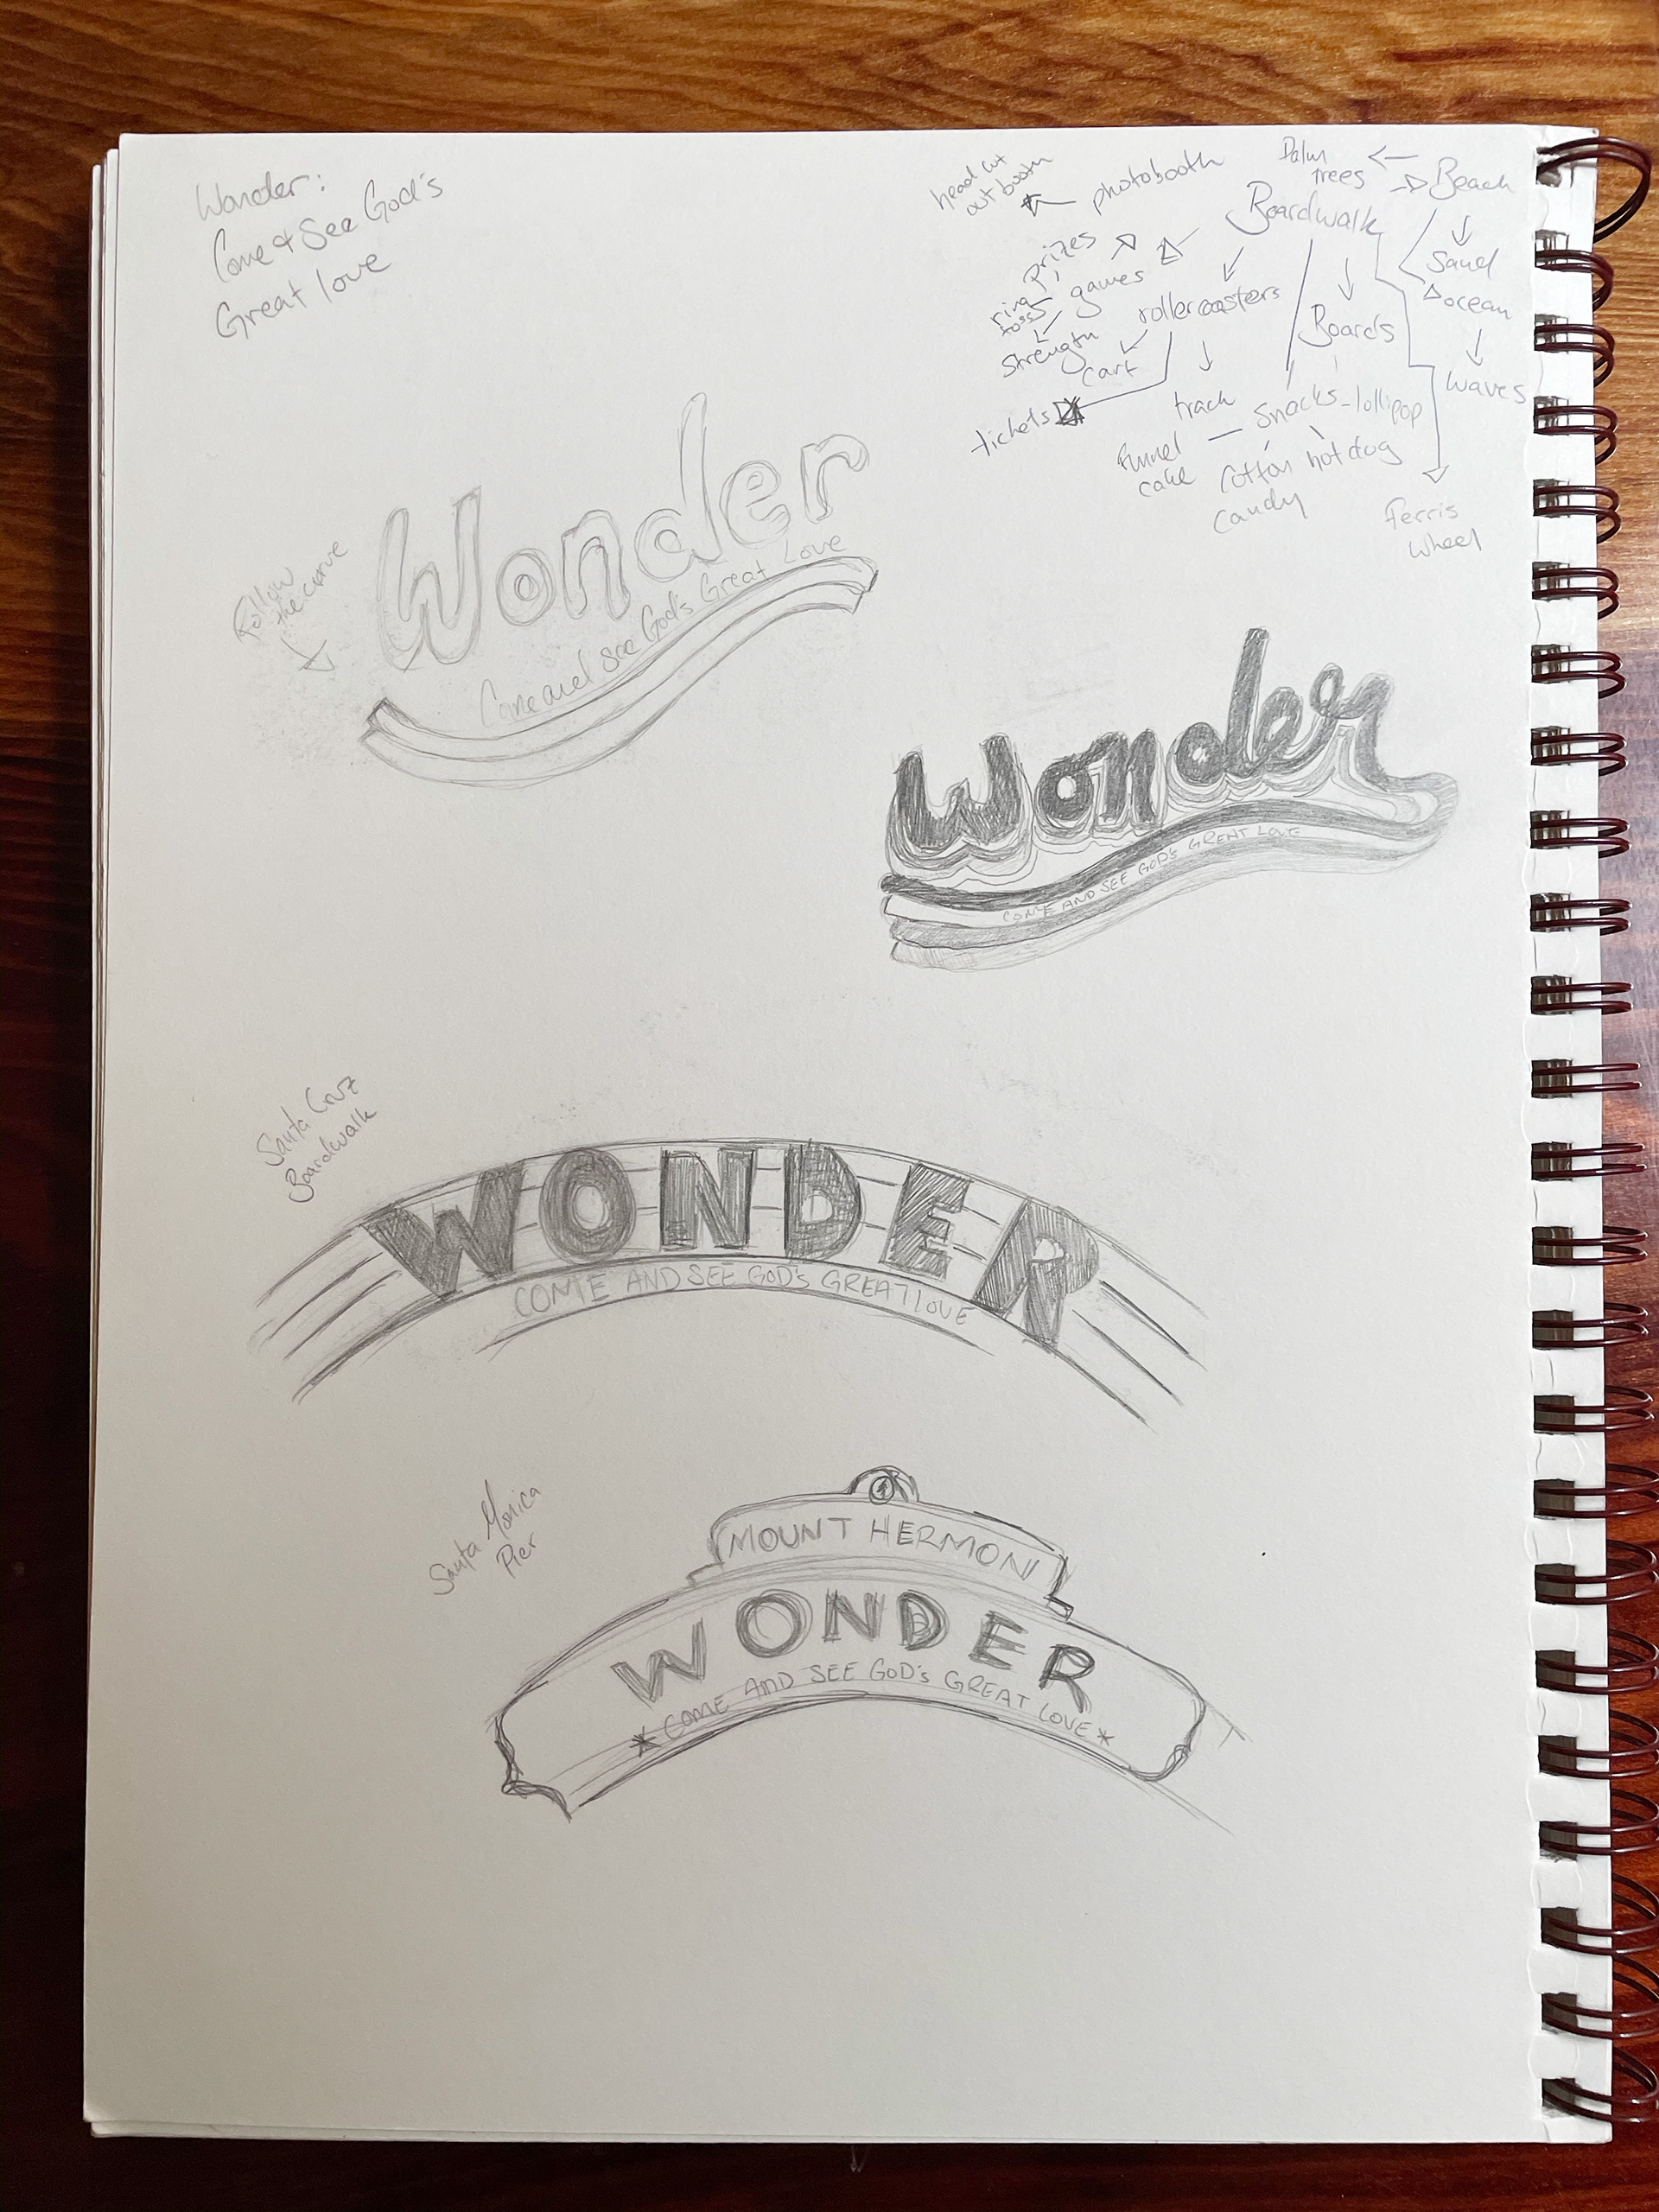 Wonder:
Come & See God's
Great love
head cut
out booth
photobooth
Palm
trees
Beach
Boardwalk
prizes
games
ring
toss
strength
rollercoasters
cart
track
tickets
Boards
Sand
ocean
waves
snacks - lollipop
funnel
cake
cotton
candy
hot dog
ferris
wheel
Wonder
Come and see God's Great Love
Follow
the curve
Wonder
COME AND SEE GOD'S GREAT LOVE
Santa Cruz
Boardwalk
WONDER
COME AND SEE GOD'S GREAT LOVE
Santa Monica
Pier
MOUNT HERMON
WONDER
* COME AND SEE GOD'S GREAT LOVE *